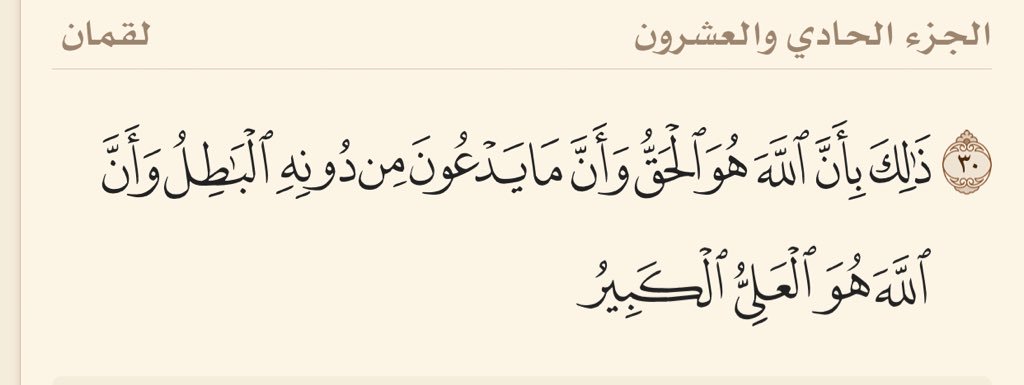 الجزء الحادي والعشرون
لقمان
٣٠ ذَٰلِكَ بِأَنَّ ٱللَّهَ هُوَ ٱلْحَقُّ وَأَنَّ مَا يَدْعُونَ مِن دُونِهِ ٱلْبَٰطِلُ وَأَنَّ
ٱللَّهَ هُوَ ٱلْعَلِىُّ ٱلْكَبِيرُ